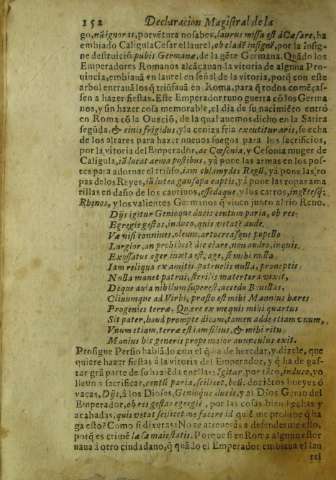 152 Declaracion Magistral de la
go, ni ignorar, por vêtura no sabes, laurus missa est à Cæsare, ha
embiado Caligula Cesar el laurel, ob cladê insignê, por la insig
ne destruiciõ pubis Germanæ, de la gête Germana. Quãdo los
Emperadores Romanos alcãçauan la vitoria de alguna Pro-
uincia, embiauã en laurel en señal de la vitoria, porq̃ con este
arbol entrauã los q̃ triũfauã en Roma, para q̃ todos començas-
sen a hazer fiestas. Este Emperador tuuo guerra cõ los Germa-
nos, y sin hazer cosa memorable, el dia de su nacimiẽto entró
en Roma cõ la Ouaciõ, de la qual auemos dicho en la Satira
segũda, & cinis frigidus, y la ceniza fria excutitur aris, se echa
de los altares para hazer nueuos fuegos para los sacrificios,
por la vitoria del Emperador, ac Cæsonia, y Cesonia muger de
Caligula, iã locat arma postibus, yà pone las armas en los pos-
tes para adornar el triũfo, iam chlamydes Regũ, yà pone las ro
pas de los Reyes, iã lutea gausapa captis, yà pone las ropas ama
rillas en daño de los cautiuos, essedaque, y los carros, ingẽtesq̃;
Rhenos, y los valientes Germanos q̃ viuen junto al rio Reno.
Dijs igitur Genioque ducis centum paria, ob res
Egregiè gestas, induco, quis vetat? aude.
Væ nisi connives, oleum, artocreasque popello
Largior, an prohibes? dic clarè, non audeo, inquis.
Exossatus ager iuxta est, age, si mihi nulla
Iam reliqua ex amitis patruelis nulla, proneptis
Nulla manet patrui, sterilis matertera vixit,
Deque auia nihilum superest, accedo Bouillas,
Cliuumque ad Virbi, præsto est mihi Mannius hæres
Progenies terræ. Quære ex me quis mihi quartus
Sit pater, haud promptè dicam, tamen adde etiam vnum,
Vnum etiam, terræ est iam filius, & mihi ritu
Manius hic generis propè maior auunculus exit.
Prosigue Persio hablãdo con el q̃ ha de heredar, y dizele, que
quiere hazer fiestas à la vitoria del Emperador, y q̃ ha de gas-
tar grã parte de su hazieda en ellas: Igitur, por tãto, induco, vo
lleuo a sacrificar, centũ paria, scilicet, boũ, dozientos bueyes ò
vacas, Dijs, à los Dioses, Genioque ducis, y al Dios Genio del
Emperador, ob res gestas egregiè, por las cosas bien hechas y
acabadas, quis vetat scilicet me facere id quê me prohibe q̃ ha
ga esto? Como si dixera: No te atreueràs a defenderme esto,
porq̃ es crimẽ læsæ maiestatis. Porque si en Roma alguno estor
naua à otro ciudadano, q̃ quãdo el Emperador embiaua el lau
rel